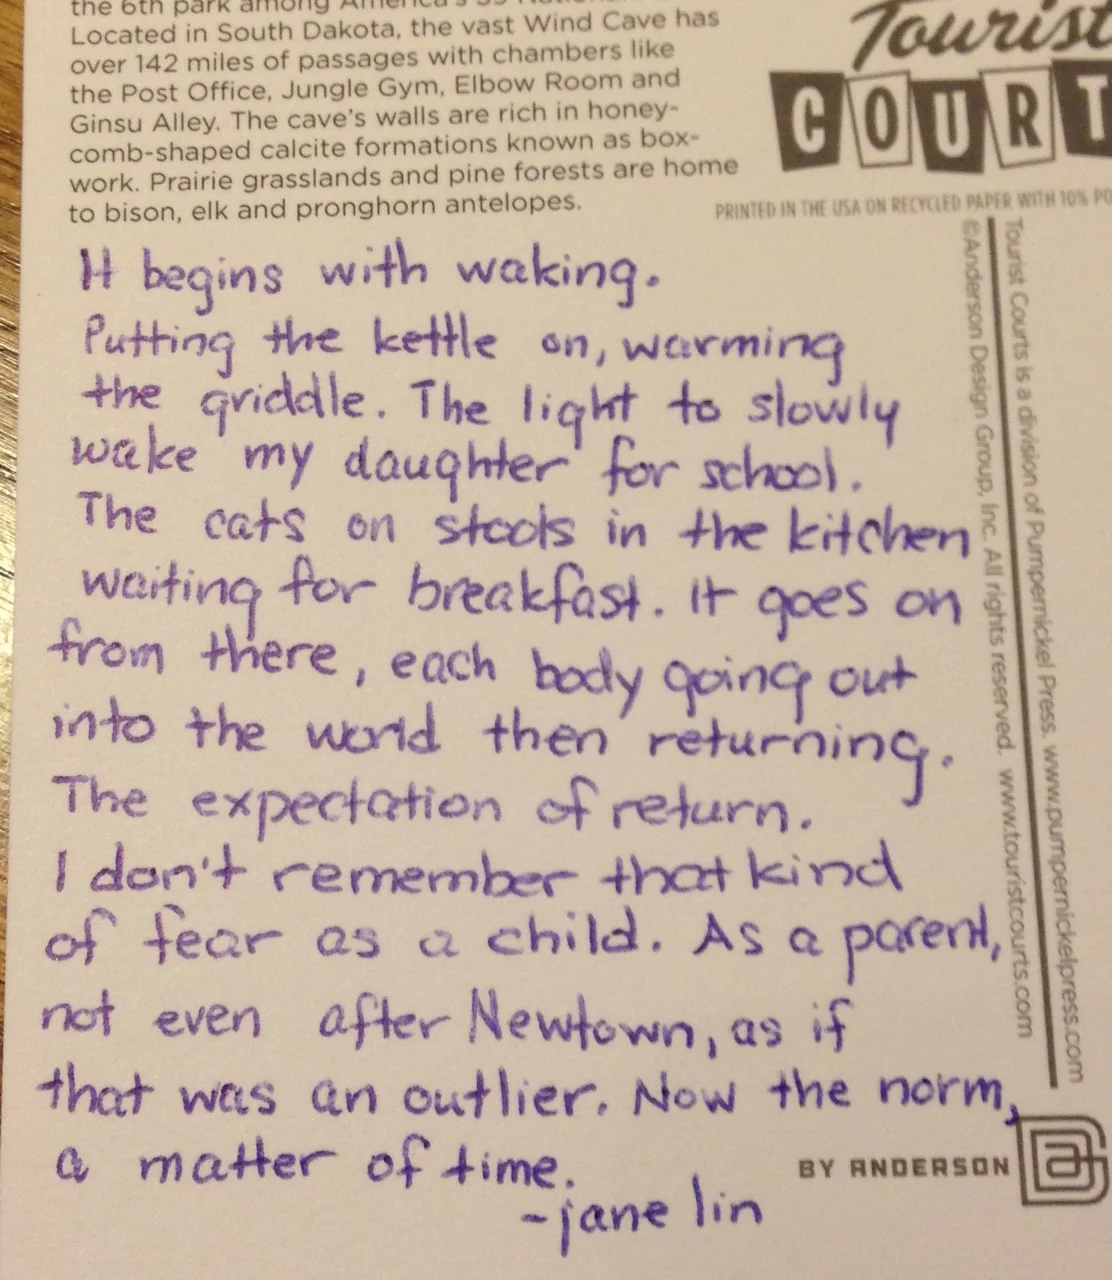 the 6th park among America's
Located in South Dakota, the vast Wind Cave has
over 142 miles of passages with chambers like
the Post Office, Jungle Gym, Elbow Room and
Ginsu Alley. The cave's walls are rich in honey-
comb-shaped calcite formations known as box-
work. Prairie grasslands and pine forests are home
to bison, elk and pronghorn antelopes.
Tourist
COURT
PRINTED IN THE USA ON RECYCLED PAPER WITH 10% PO
Tourist Courts is a division of Pumpernickel Press. www.pumpernickelpress.com
©Anderson Design Group, Inc. All rights reserved. www.touristcourts.com
It begins with waking.
Putting the kettle on, warming
the griddle. The light to slowly
wake my daughter for school.
The cats on stools in the kitchen
waiting for breakfast. It goes on
from there, each body going out
into the world then returning.
The expectation of return.
I don't remember that kind
of fear as a child. As a parent,
not even after Newtown, as if
that was an outlier. Now the norm,
a matter of time.
-jane lin
BY ANDERSON